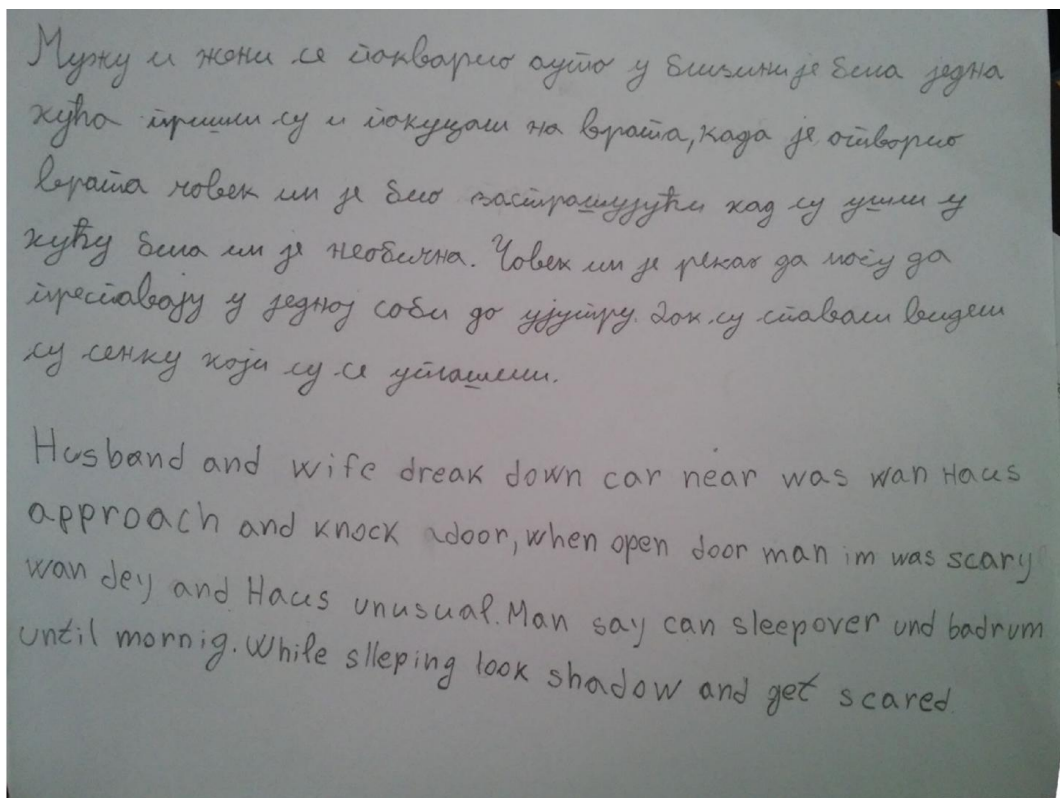 Мужу и жени се покварио ауто у близини је била једна
кућа пришли су и покуцали на врата, када је отворио
врата човек им је био застрашујући кад су ушли у
кућу била им је необична. Човек им је рекао да могу да
преспавају у једној соби до ујутру. Док су спавали видели
су сенку који су се уплашили.
Husband and wife dreak down car near was wan Haus
approach and knock adoor, when open door man im was scary
wan dey and Haus unusual. Man say can sleepover und badrum
until mornig. While slleping look shadow and get scared.